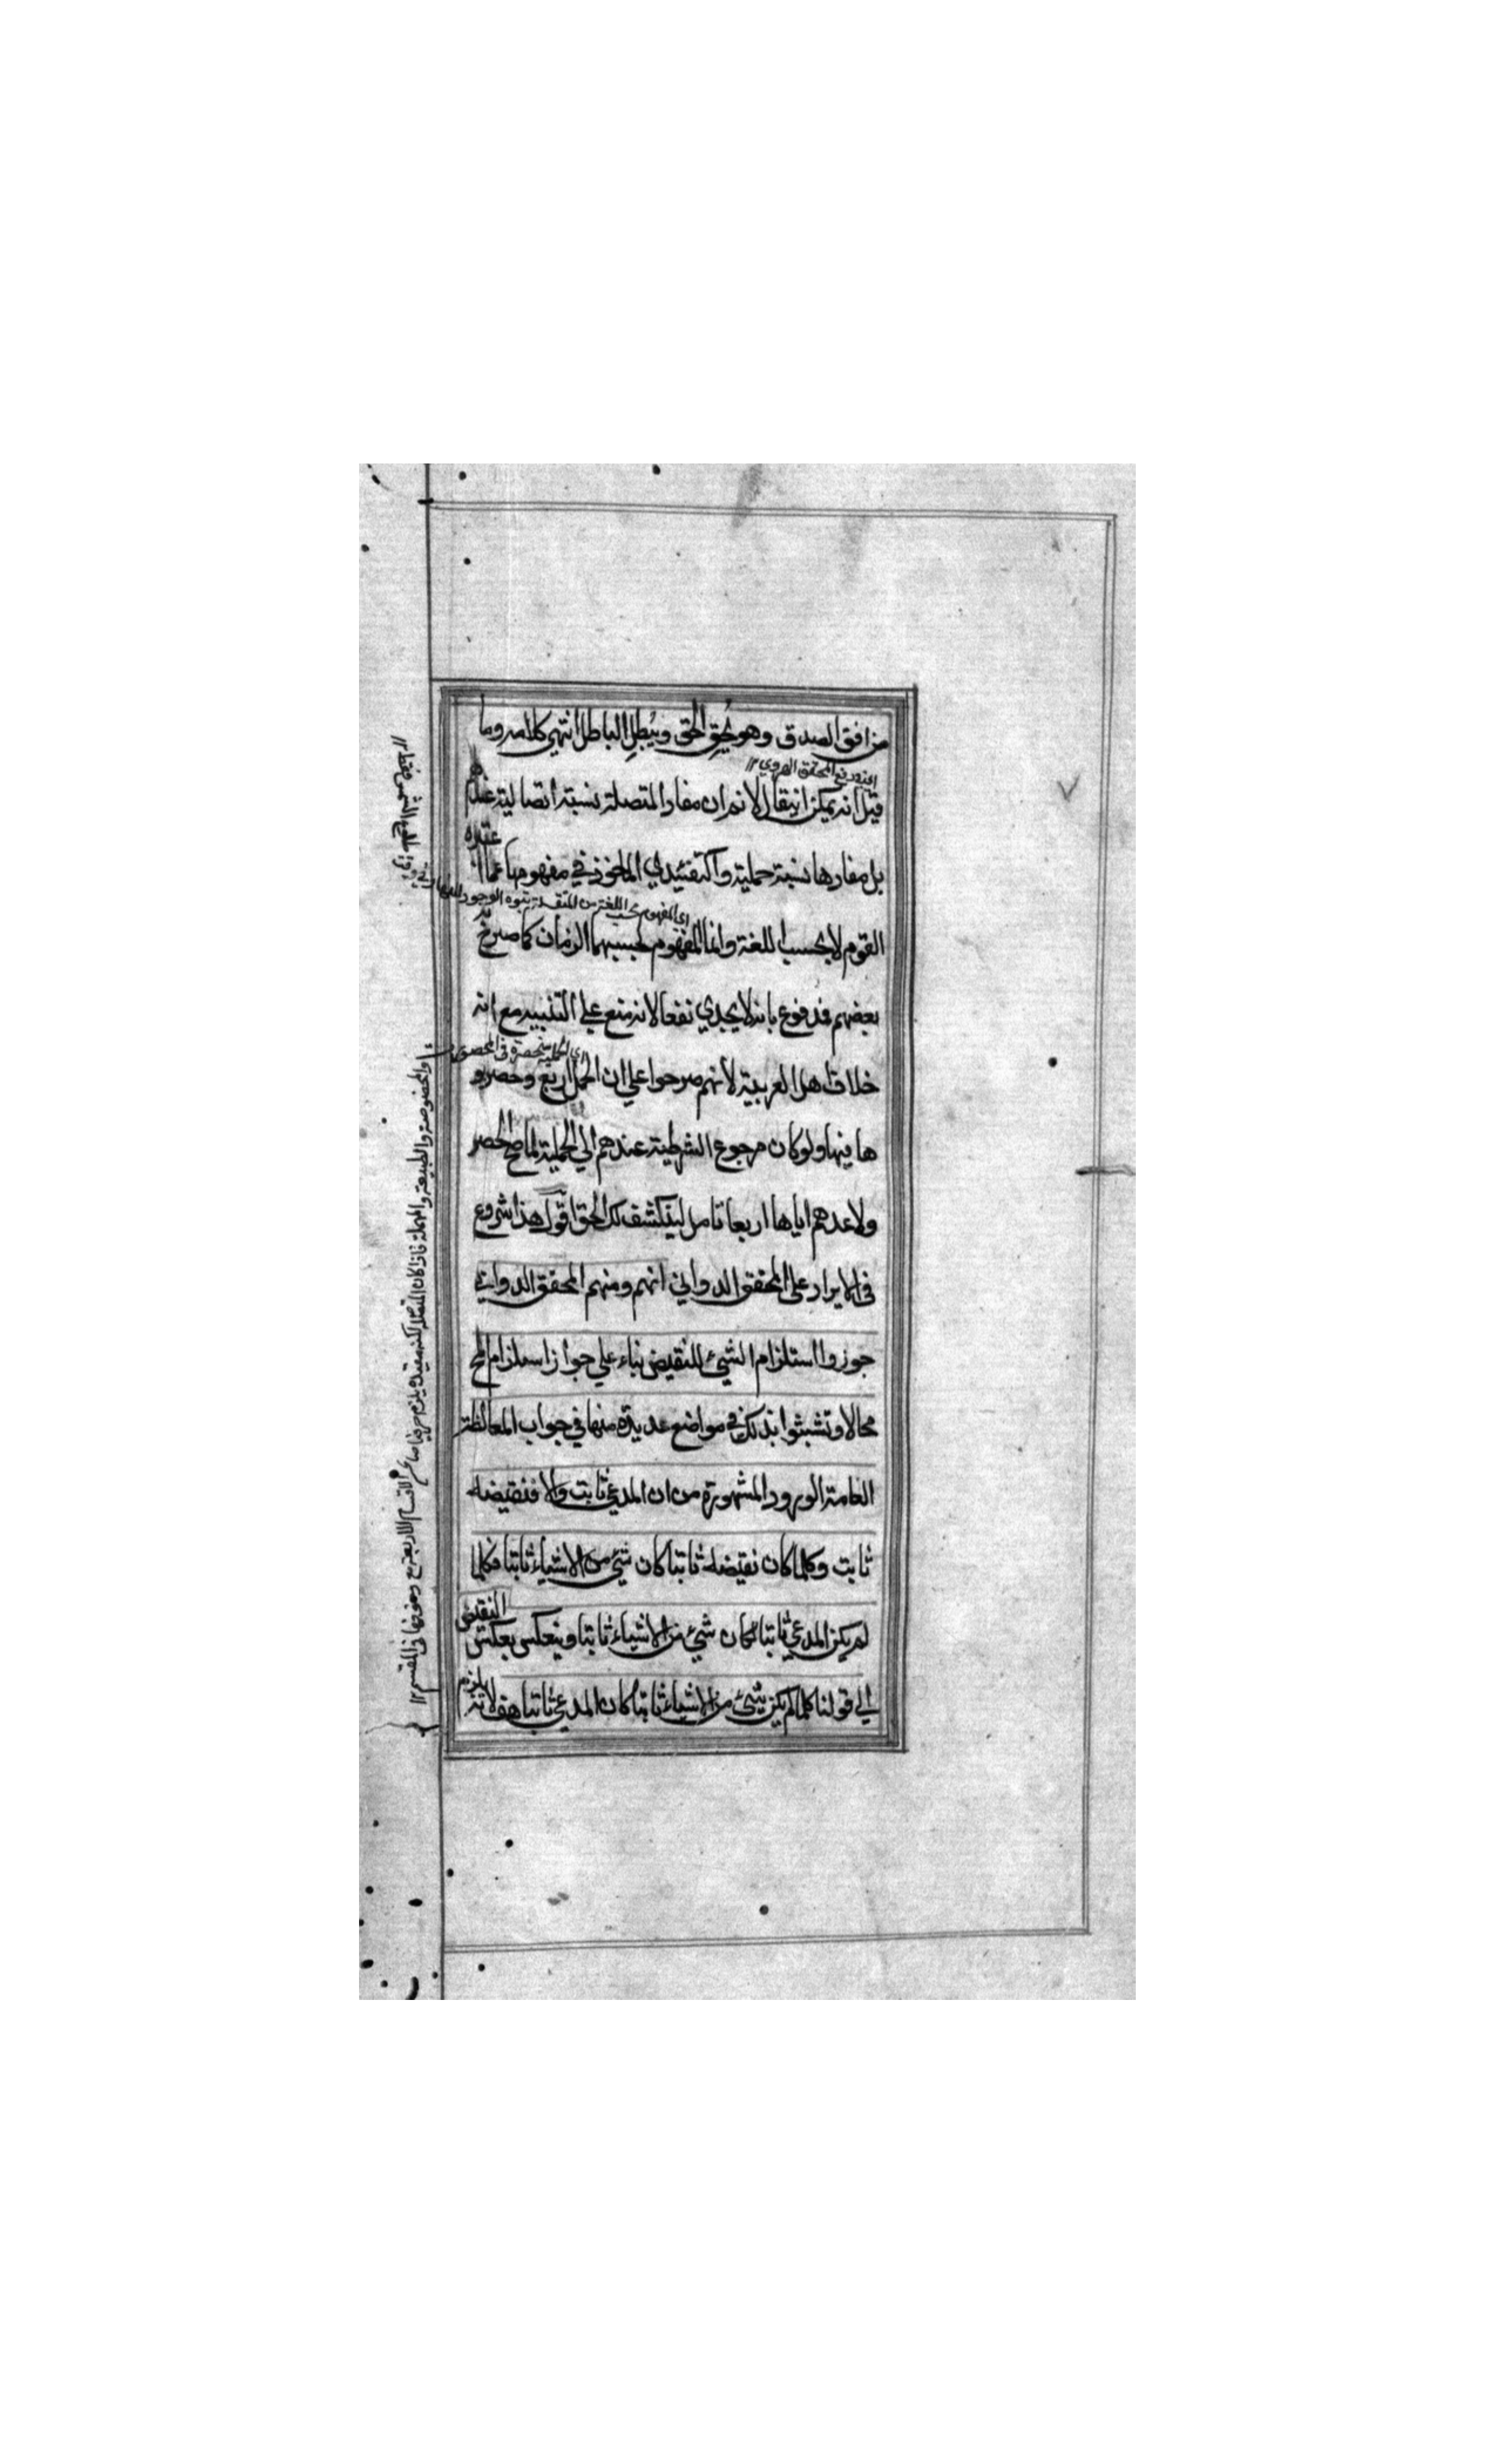 من افق الصدق وهو يُحِق الحق ويُبطِل الباطل انتهى كلامه وما
المحقق الهروي ١٢
قيل انه يمكن ان يقال لا نم ان مفاد المتصلة نسبة اتصالية عندهم
بل مفادها نسبة حملية والتقييدي الماخوذ في مفهومها عند
اي المفهوم بحسب اللغة من
القوم لا بحسب اللغة وانما المفهوم بحسبها الزمان كما صرح به
بعضهم فمدفوع بانه لا يجدي نفعا لانه منع على التنبيه مع انه
اي الحملية منحصرة في المحصورة
خلاف اهل العربية لانهم صرحوا على ان الجمل اربع وحصرو
ها فيها ولو كان مرجوع الشرطية عندهم الي الحملية لما صح الحصر
ولا عدهم اياها اربعا تامل لينكشف لك الحق اقول هذا شروع
في الايراد على المحقق الدواني انهم ومنهم المحقق الدواني
جوزوا استلزام الشيئ للنقيض بناء علي جواز استلزام المح
محالا وتشبثوا بذلك في مواضع عديدة منها في جواب المغالطة
العامة الورود المشهورة من ان المدعي ثابت والا فنقيضه
ثابت وكلما كان نقيضه ثابتا كان شيئ من الاشياء ثابتا فكلما
لم يكن المدعي ثابتا كان شيئ من الاشياء ثابتا وينعكس بعكس النقيض
الي قولنا كلما لم يكن شيئ من الاشياء ثابتا كان المدعي ثابتا هف لانه يلزم
والمخصوصة والطبيعة والمهملة فاذا كان المتصلة يلزم الاقسام الاربعة مع في المقسم ١٢